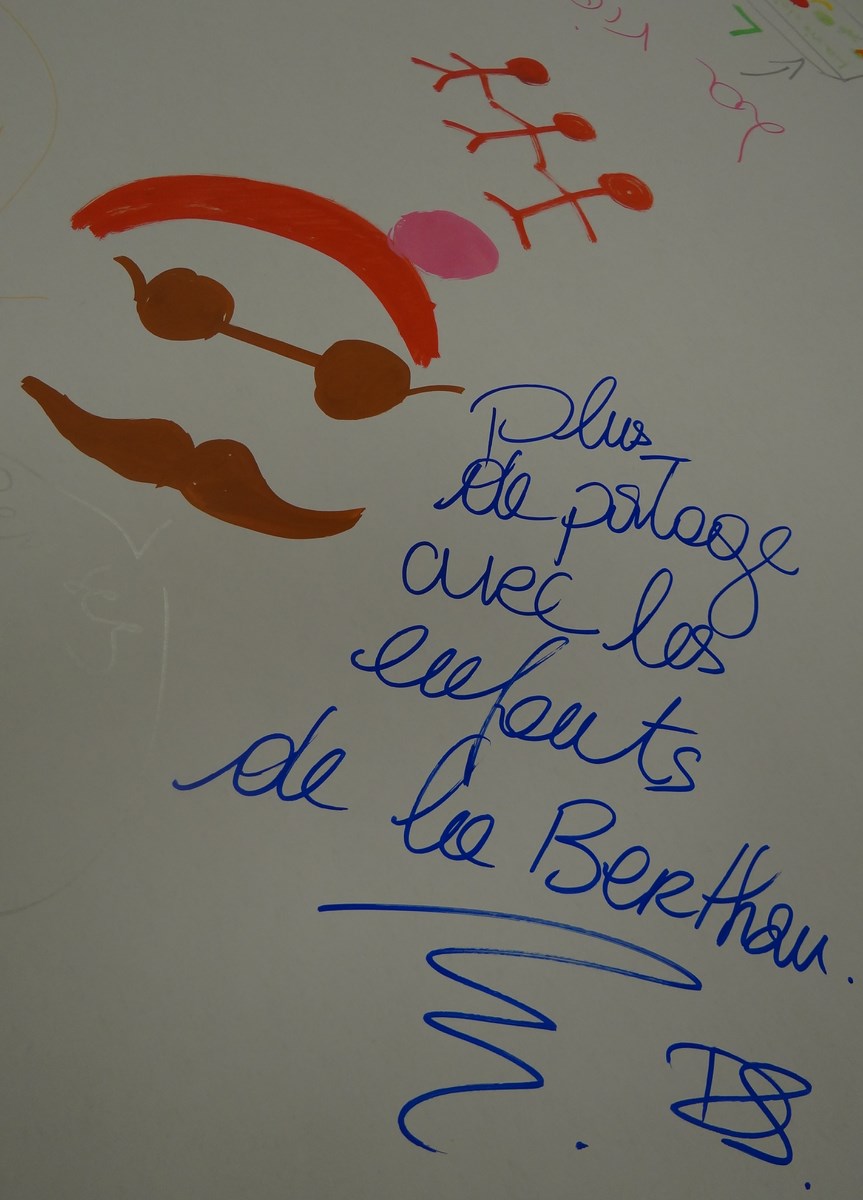 Plus
de partage
avec les
enfants
de la Berthau.
DS.